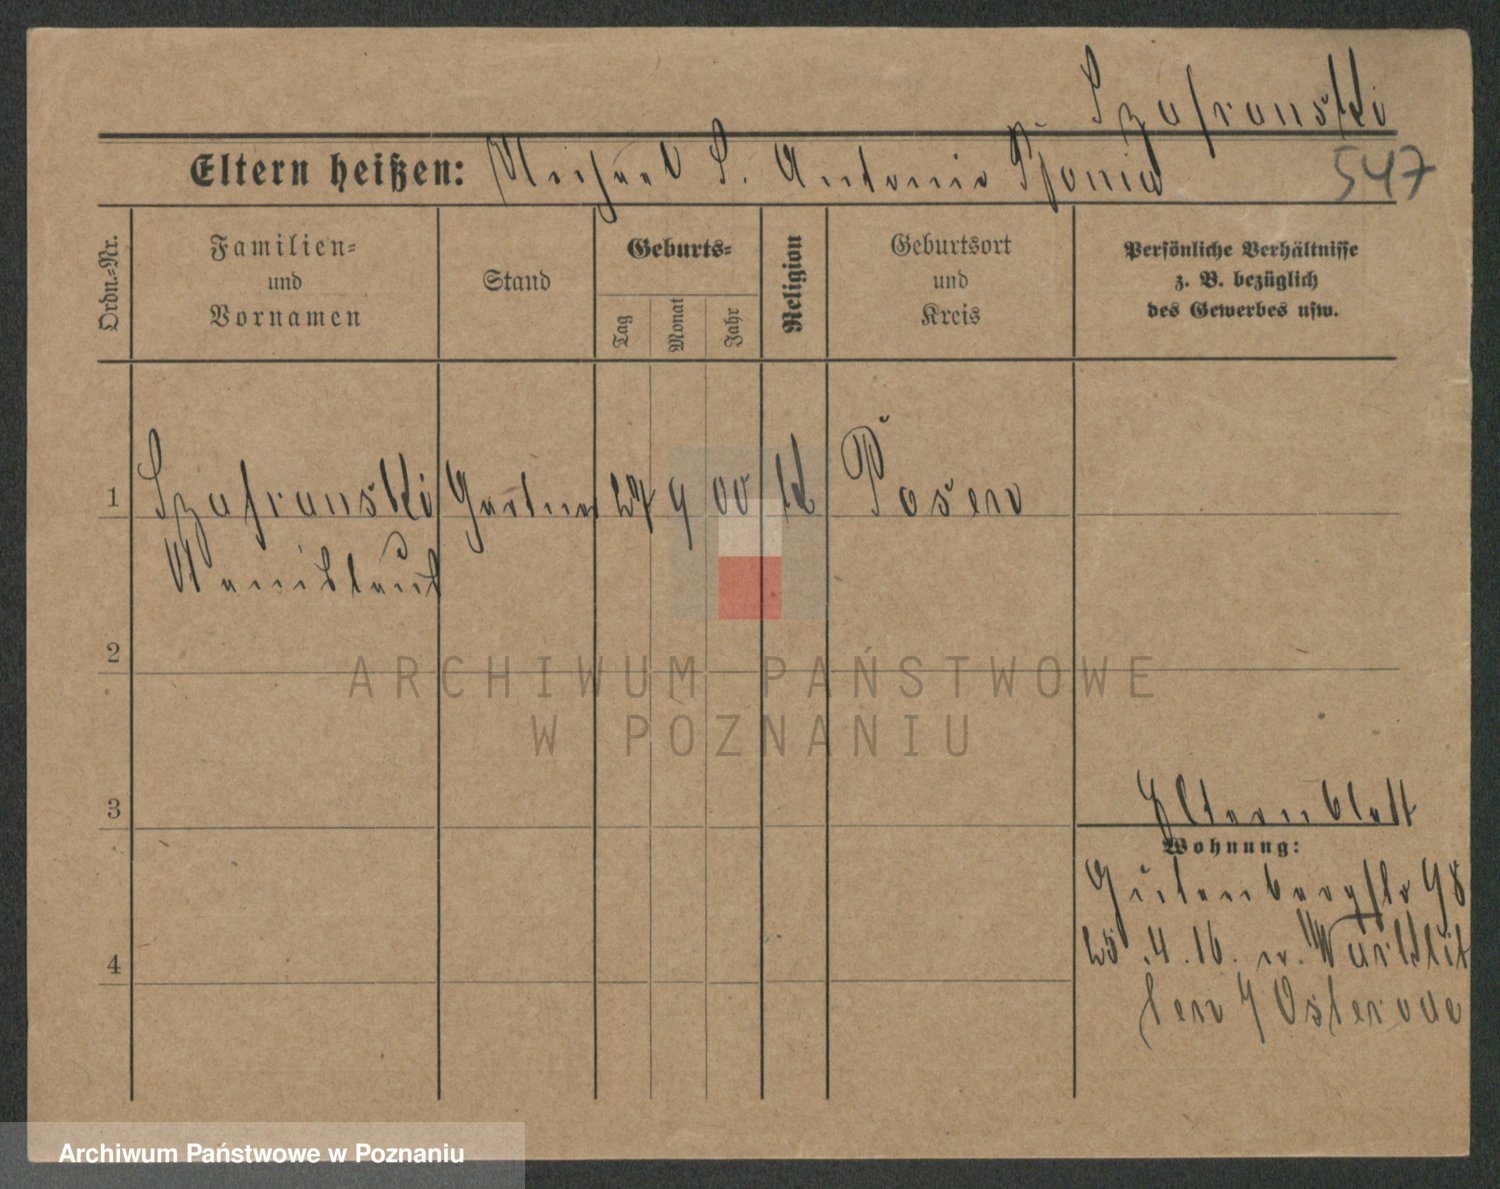 Szafranski
Eltern heißen: Michael S. Antonie
547
Ordn.-Nr.
Familien-
und
Vornamen
Stand
Geburts-
Tag
Monat
Jahr
Religion
Geburtsort
und
Kreis
Persönliche Verhältnisse
z. B. bezüglich
des Gewerbes usw.
1 Szafranski Gärtner 27 9 00 k Posen
Stanislaus
2
ARCHIWUM PAŃSTWOWE
W POZNANIU
3
Elternblatt
Wohnung:
Gutenbergstr 48
4
25.4.16. n.
Osterode
Archiwum Państwowe w Poznaniu